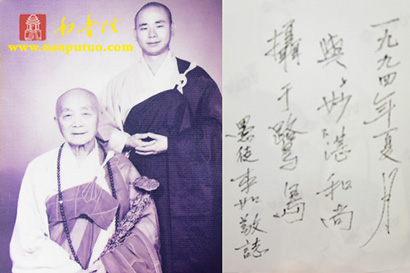 南普陀
www.nanputuo.com
一九九四年夏月
與妙湛和尚
攝于鷺島
愚徒本如敬誌